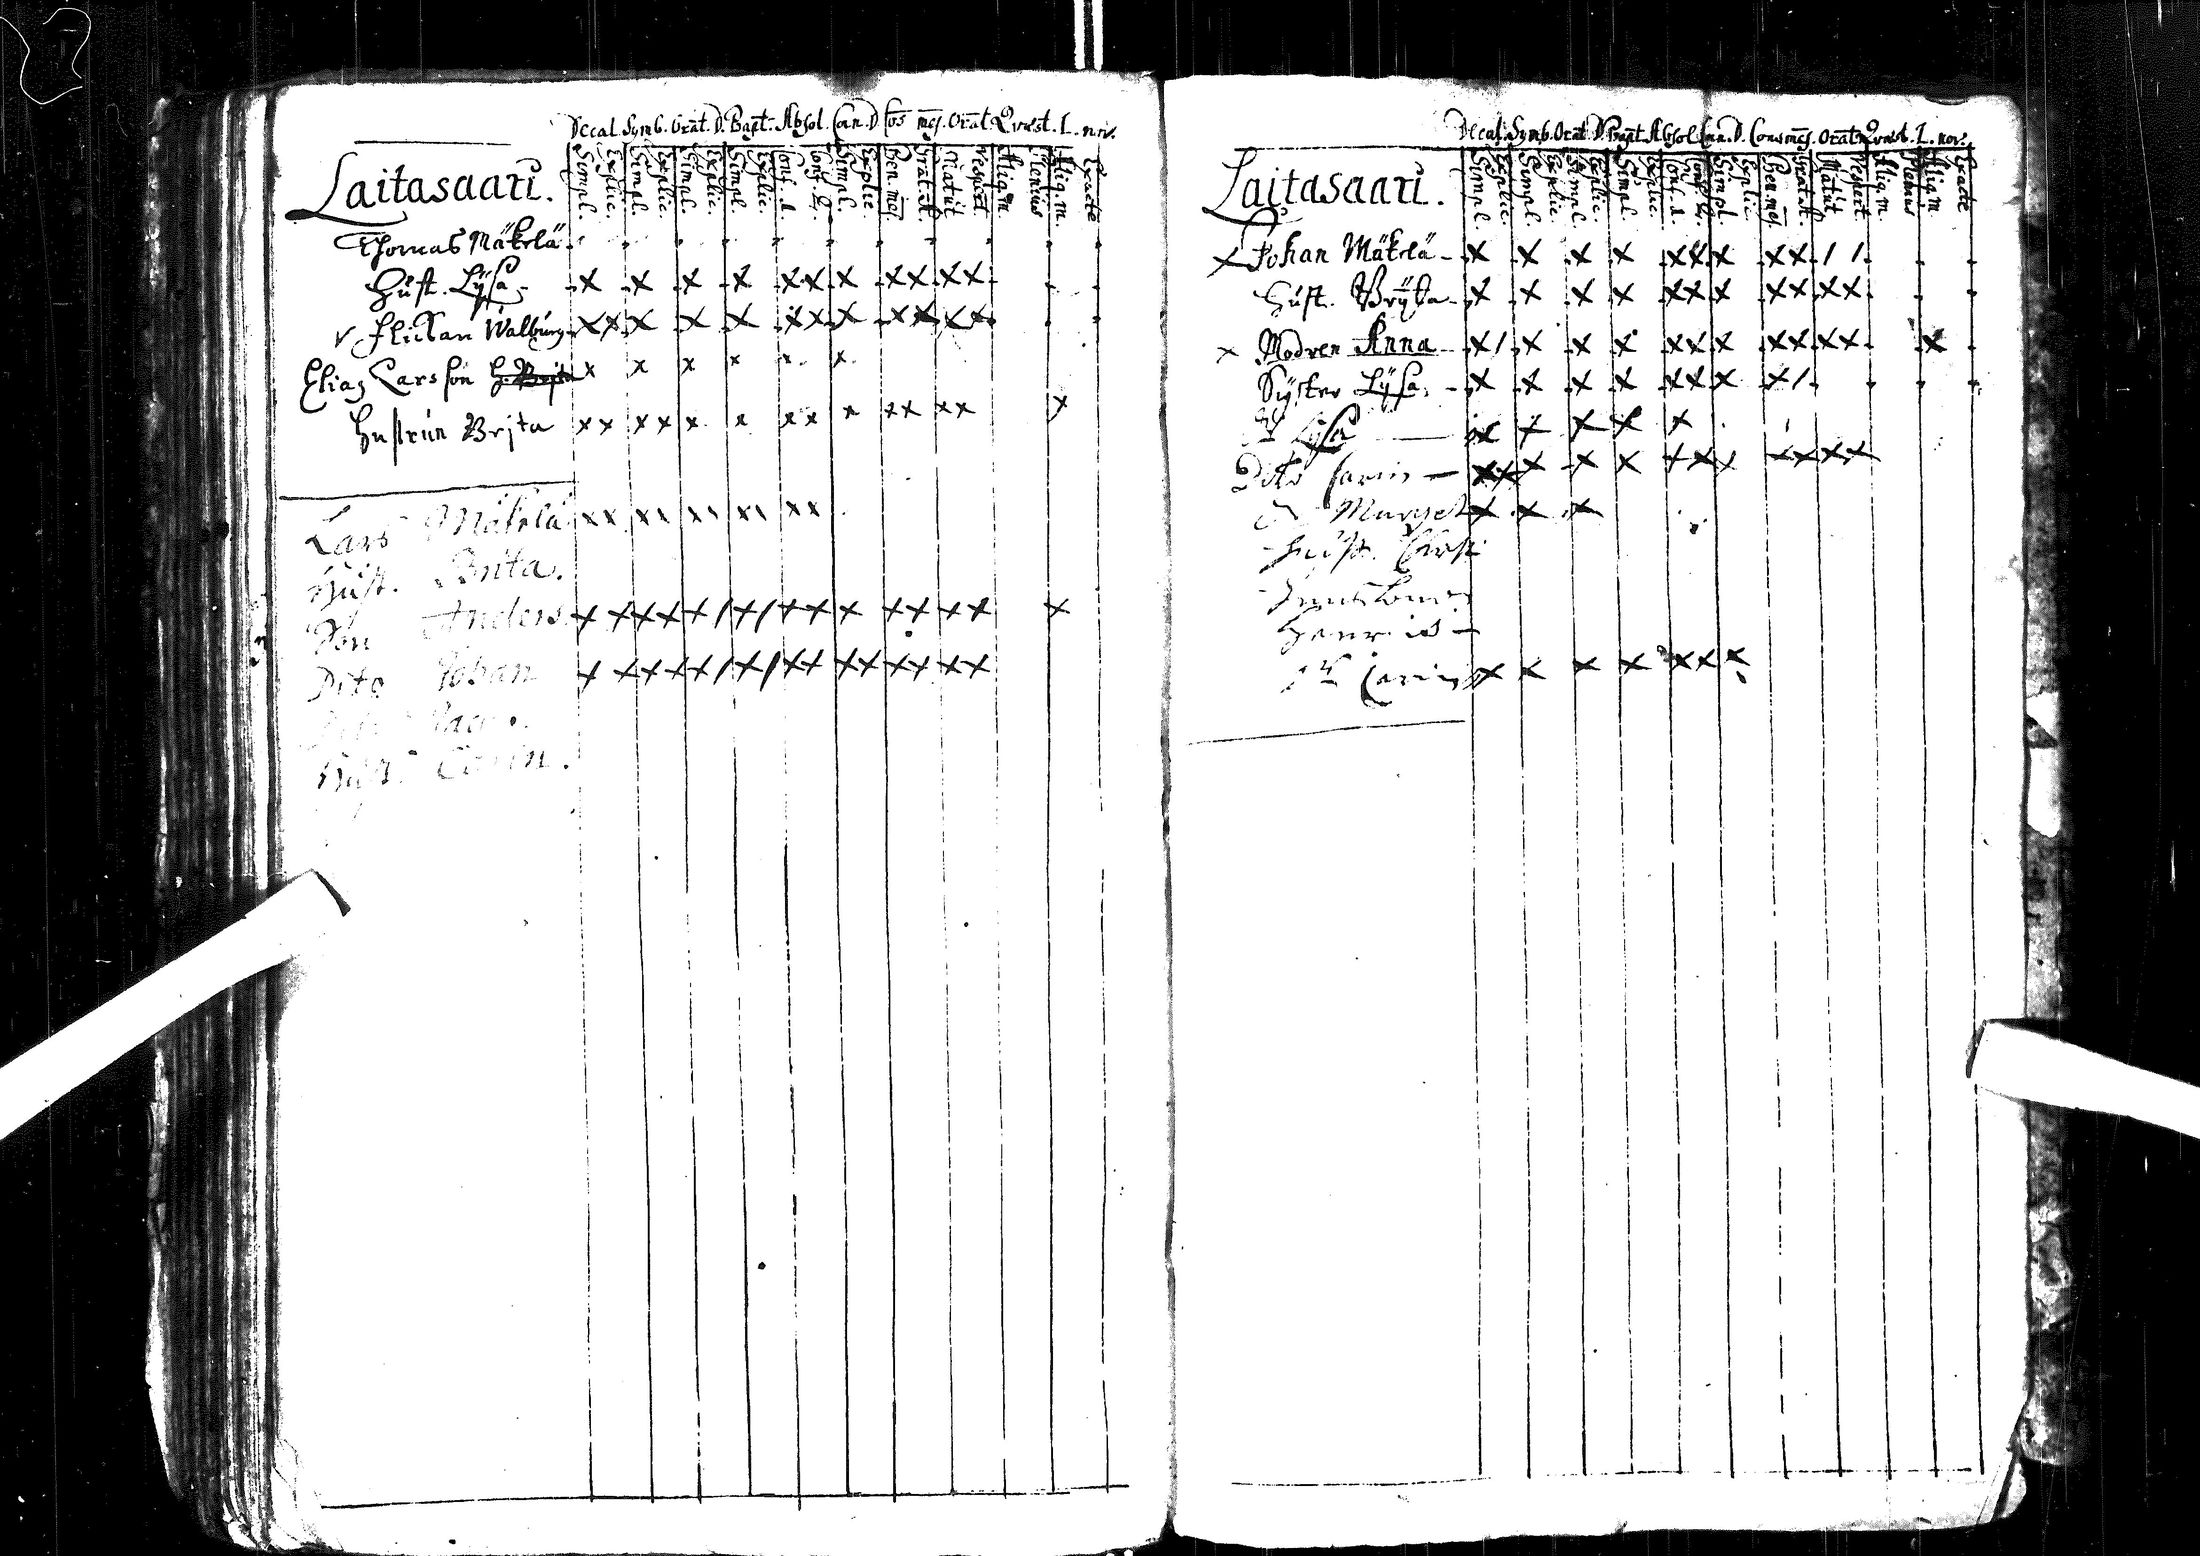 Decal. Symb. Orat. D. Bapt. Absol. Cœn. D. Cōs mēs. Orāt. Qvæst. L. nov.
Simpl. Explic. Simpl. Explic. Simpl. Explic. Simpl. Explic. Conf. 1. Conf. 2. Simpl. Explic. Ben. mēs. Grat. at. Matut. Vespert. Aliq.m Plenius Aliq.m Exacte
Laitasaari.
Thomas Mäkelä
Hust. Lÿsa
v Flickan Walbūrg
Elias Larsson H. Brita
Hustrun Brita
Lars Mäkelä
Hust. Brita.
Son Anders
Dito Johan
Hust. Carin.
Decal. Symb. Orat. D. Bapt. Absol. Cœn. D. Cons mēs. Orāt. Qvæst. L. nov.
Simpl. Explic. Simpl. Explic. Simpl. Explic. Simpl. Explic. Conf. 1. Conf. 2. Simpl. Explic. Ben. mēs. Grat. at. Matut. Vespert. Aliq.m Plenius Aliq.m Exacte
Laitasaari.
x Johan Mäkelä
Hust. Brÿta
x Modren Anna
Sÿster Lÿsa
Lÿsa
Dito Carin
Marget
Hust.
Henric
Carin